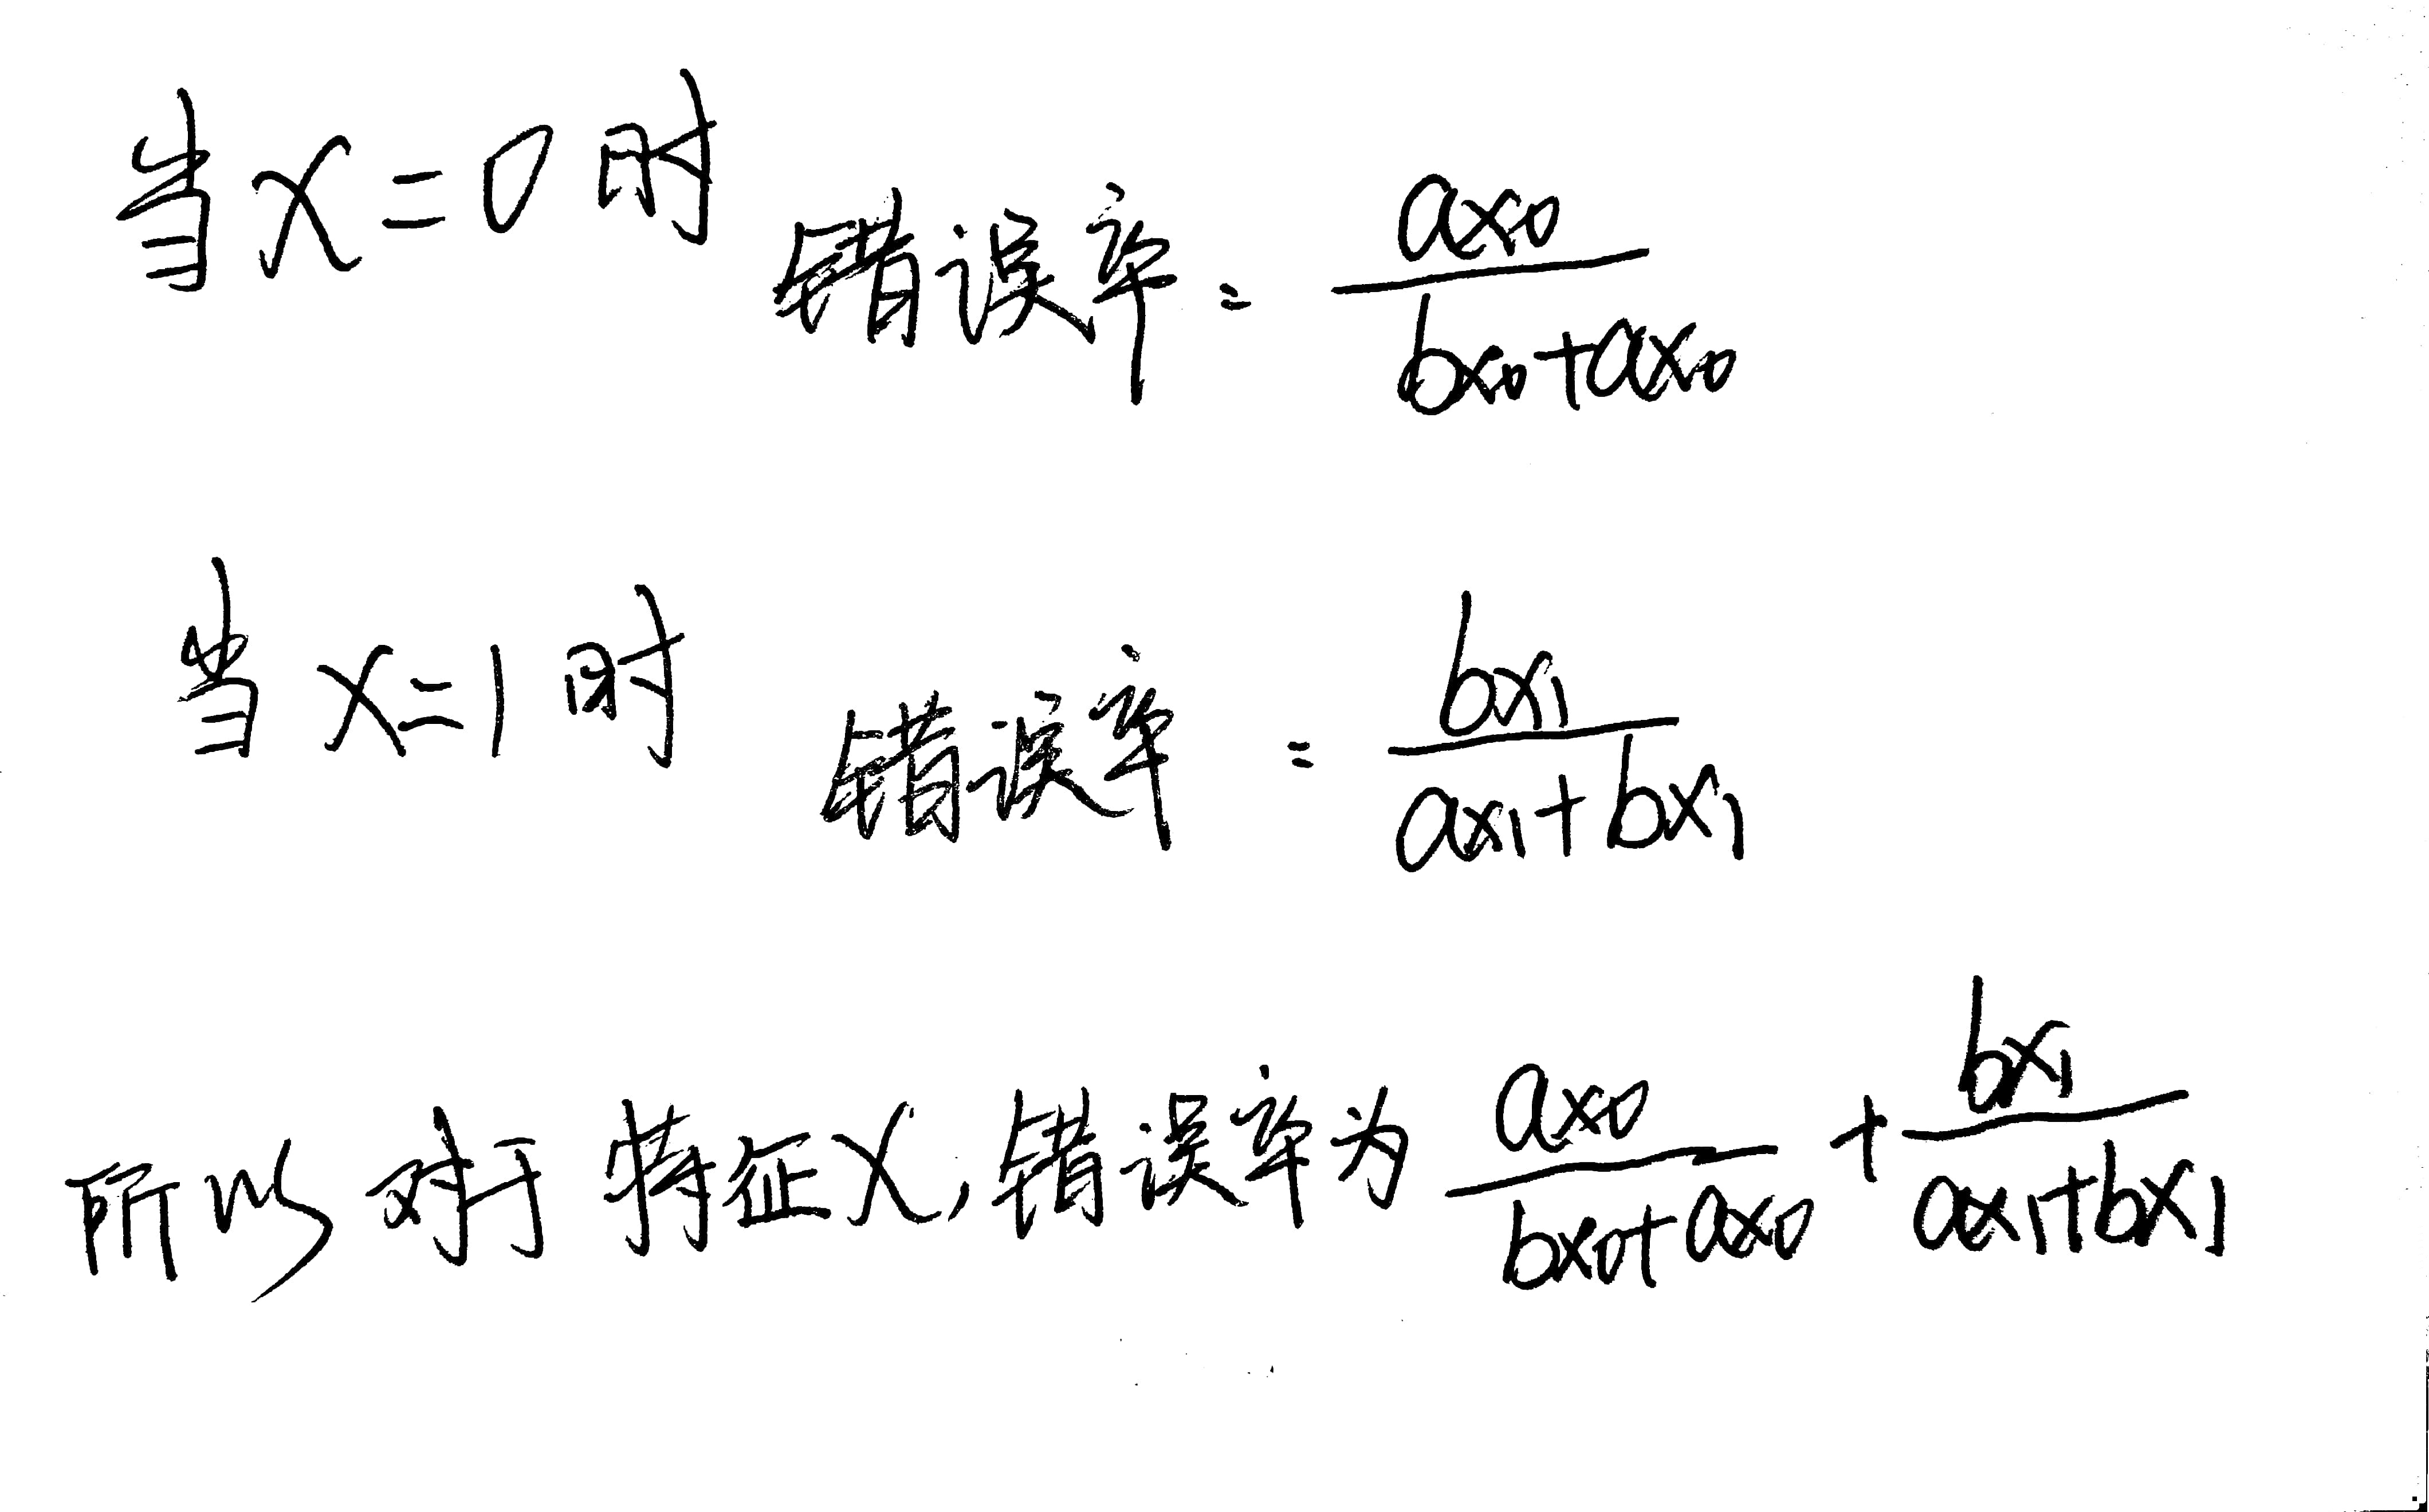 当x=0时 错误率 = ax0/(bx0+ax0)
当x=1时 错误率 = bx1/(ax1+bx1)
所以对于特征x,错误率为 ax0/(bx0+ax0) + bx1/(ax1+bx1)